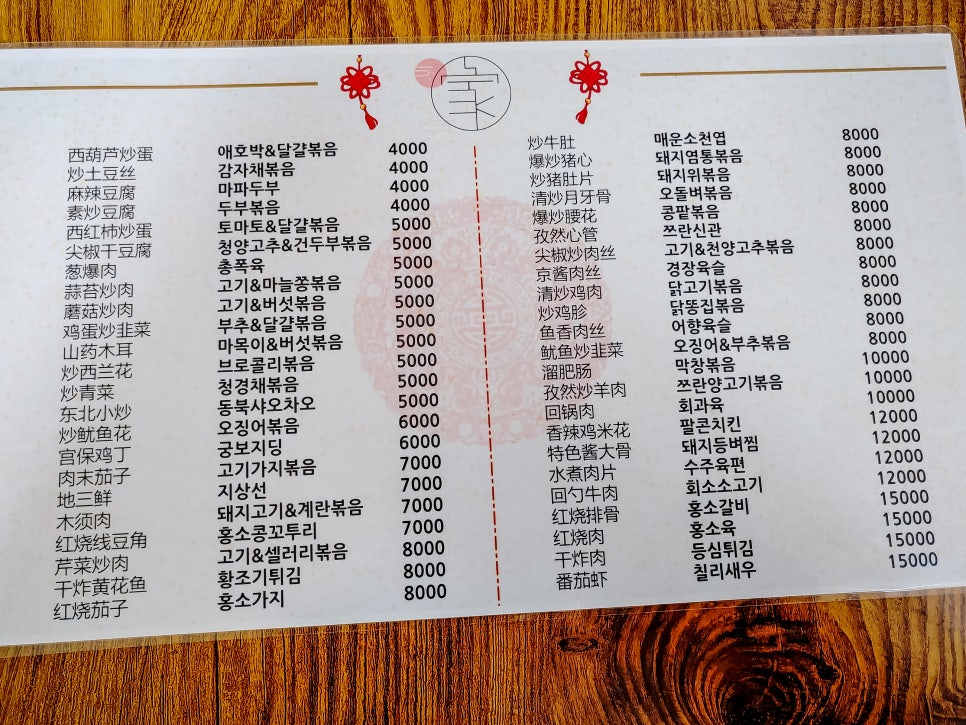 家
西葫芦炒蛋 애호박&달걀볶음 4000
炒土豆丝 감자채볶음 4000
麻辣豆腐 마파두부 4000
素炒豆腐 두부볶음 4000
西红柿炒蛋 토마토&달걀볶음 5000
尖椒干豆腐 청양고추&건두부볶음 5000
葱爆肉 총폭육 5000
蒜苔炒肉 고기&마늘쫑볶음 5000
蘑菇炒肉 고기&버섯볶음 5000
鸡蛋炒韭菜 부추&달걀볶음 5000
山药木耳 마목이&버섯볶음 5000
炒西兰花 브로콜리볶음 5000
炒青菜 청경채볶음 5000
东北小炒 동북샤오차오 5000
炒鱿鱼花 오징어볶음 6000
宫保鸡丁 궁보지딩 6000
肉末茄子 고기가지볶음 7000
地三鲜 지상선 7000
木须肉 돼지고기&계란볶음 7000
红烧线豆角 홍소콩꼬투리 7000
芹菜炒肉 고기&셀러리볶음 8000
干炸黄花鱼 황조기튀김 8000
红烧茄子 홍소가지 8000
炒牛肚 매운소천엽 8000
爆炒猪心 돼지염통볶음 8000
炒猪肚片 돼지위볶음 8000
清炒月牙骨 오돌뼈볶음 8000
爆炒腰花 콩팥볶음 8000
孜然心管 쯔란신관 8000
尖椒炒肉丝 고기&천양고추볶음 8000
京酱肉丝 경장육슬 8000
清炒鸡肉 닭고기볶음 8000
炒鸡胗 닭똥집볶음 8000
鱼香肉丝 어향육슬 8000
鱿鱼炒韭菜 오징어&부추볶음 8000
溜肥肠 막창볶음 10000
孜然炒羊肉 쯔란양고기볶음 10000
回锅肉 회과육 10000
香辣鸡米花 팔콘치킨 12000
特色酱大骨 돼지등벼찜 12000
水煮肉片 수주육편 12000
回勺牛肉 회소소고기 12000
红烧排骨 홍소갈비 15000
红烧肉 홍소육 15000
干炸肉 등심튀김 15000
番茄虾 칠리새우 15000